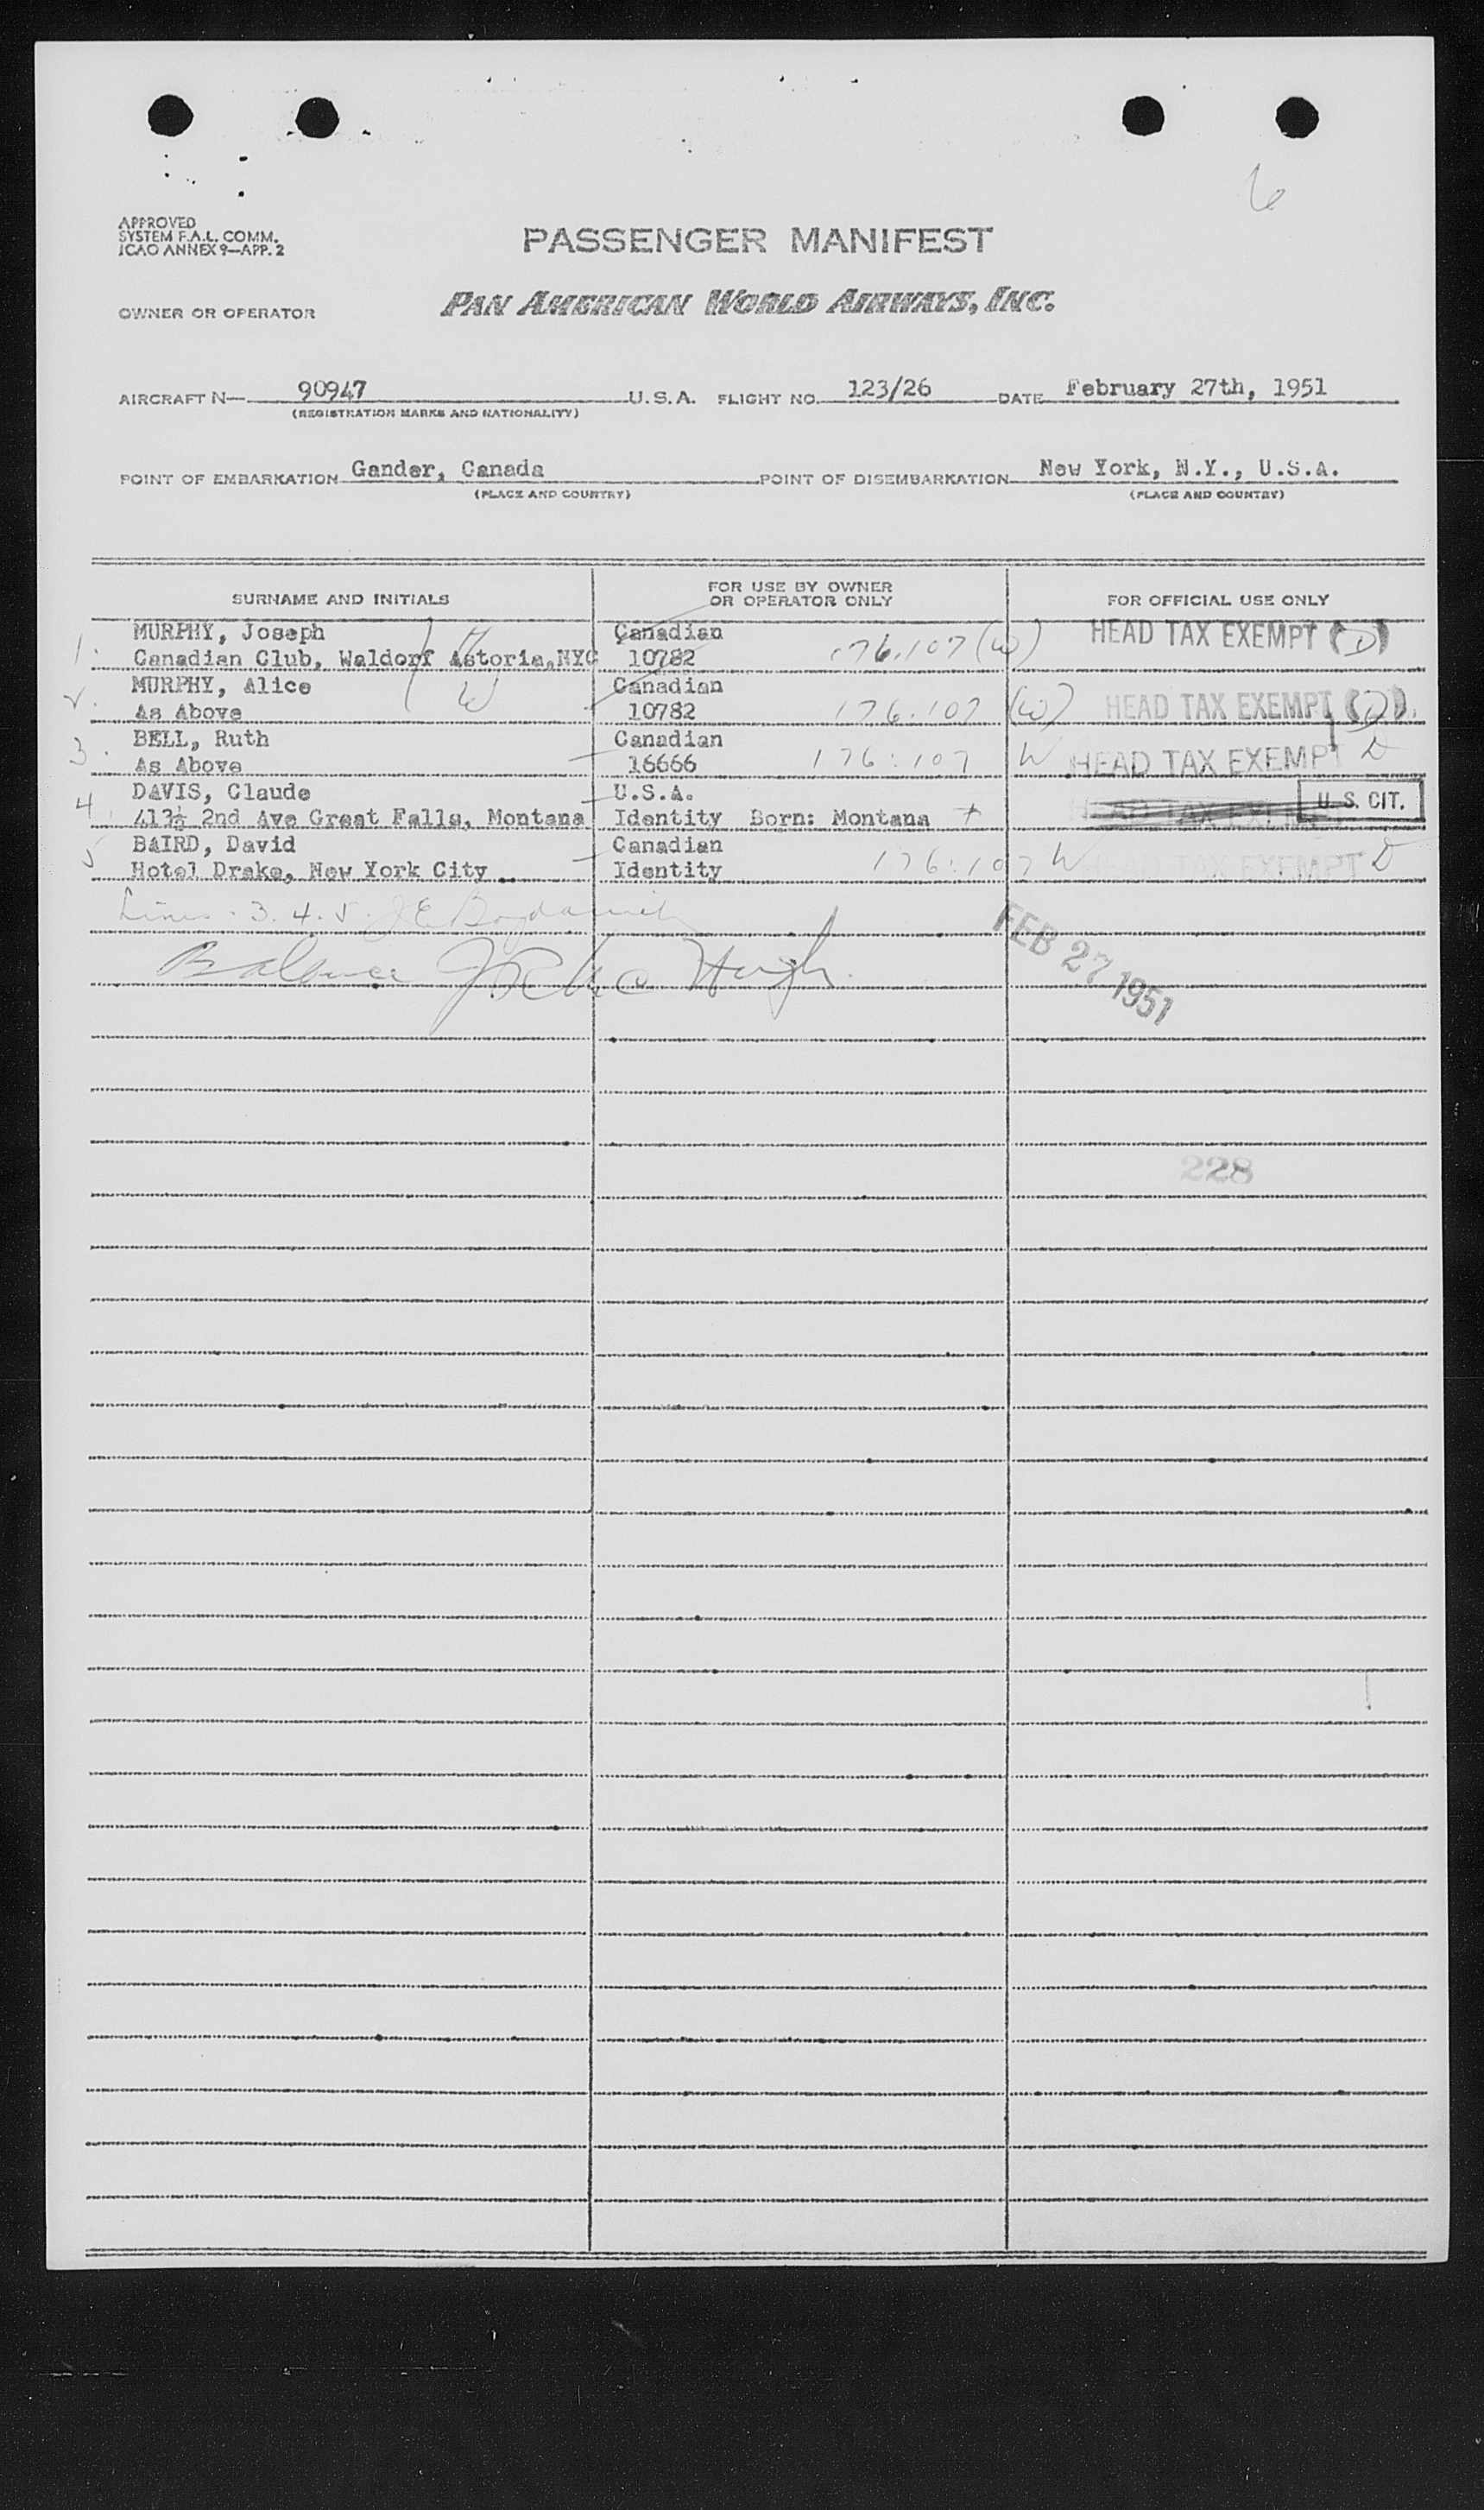 6
APPROVED
SYSTEM F.A.L. COMM.
ICAO ANNEX 9—APP. 2
PASSENGER MANIFEST
OWNER OR OPERATOR PAN AMERICAN WORLD AIRWAYS, INC.
AIRCRAFT N— 90947 U.S.A. FLIGHT NO. 123/26 DATE February 27th, 1951
(REGISTRATION MARKS AND NATIONALITY)
POINT OF EMBARKATION Gander, Canada POINT OF DISEMBARKATION New York, N.Y., U.S.A.
(PLACE AND COUNTRY) (PLACE AND COUNTRY)
SURNAME AND INITIALS FOR USE BY OWNER OR OPERATOR ONLY FOR OFFICIAL USE ONLY
MURPHY, Joseph Canadian HEAD TAX EXEMPT (D)
1. Canadian Club, Waldorf Astoria,NYC 10782 176.107 (W)
MURPHY, Alice W Canadian
2. As Above 10782 176.107 (W) HEAD TAX EXEMPT (D)
BELL, Ruth Canadian
3. As Above 16666 176.107 W HEAD TAX EXEMPT D
DAVIS, Claude U.S.A. U.S. CIT.
4. 413½ 2nd Ave Great Falls, Montana Identity Born: Montana + HEAD TAX EXEMPT
BAIRD, David Canadian
5 Hotel Drake, New York City Identity 176.107 W HEAD TAX EXEMPT D
Lines 3.4.5.
Balance
FEB 27 1951
228